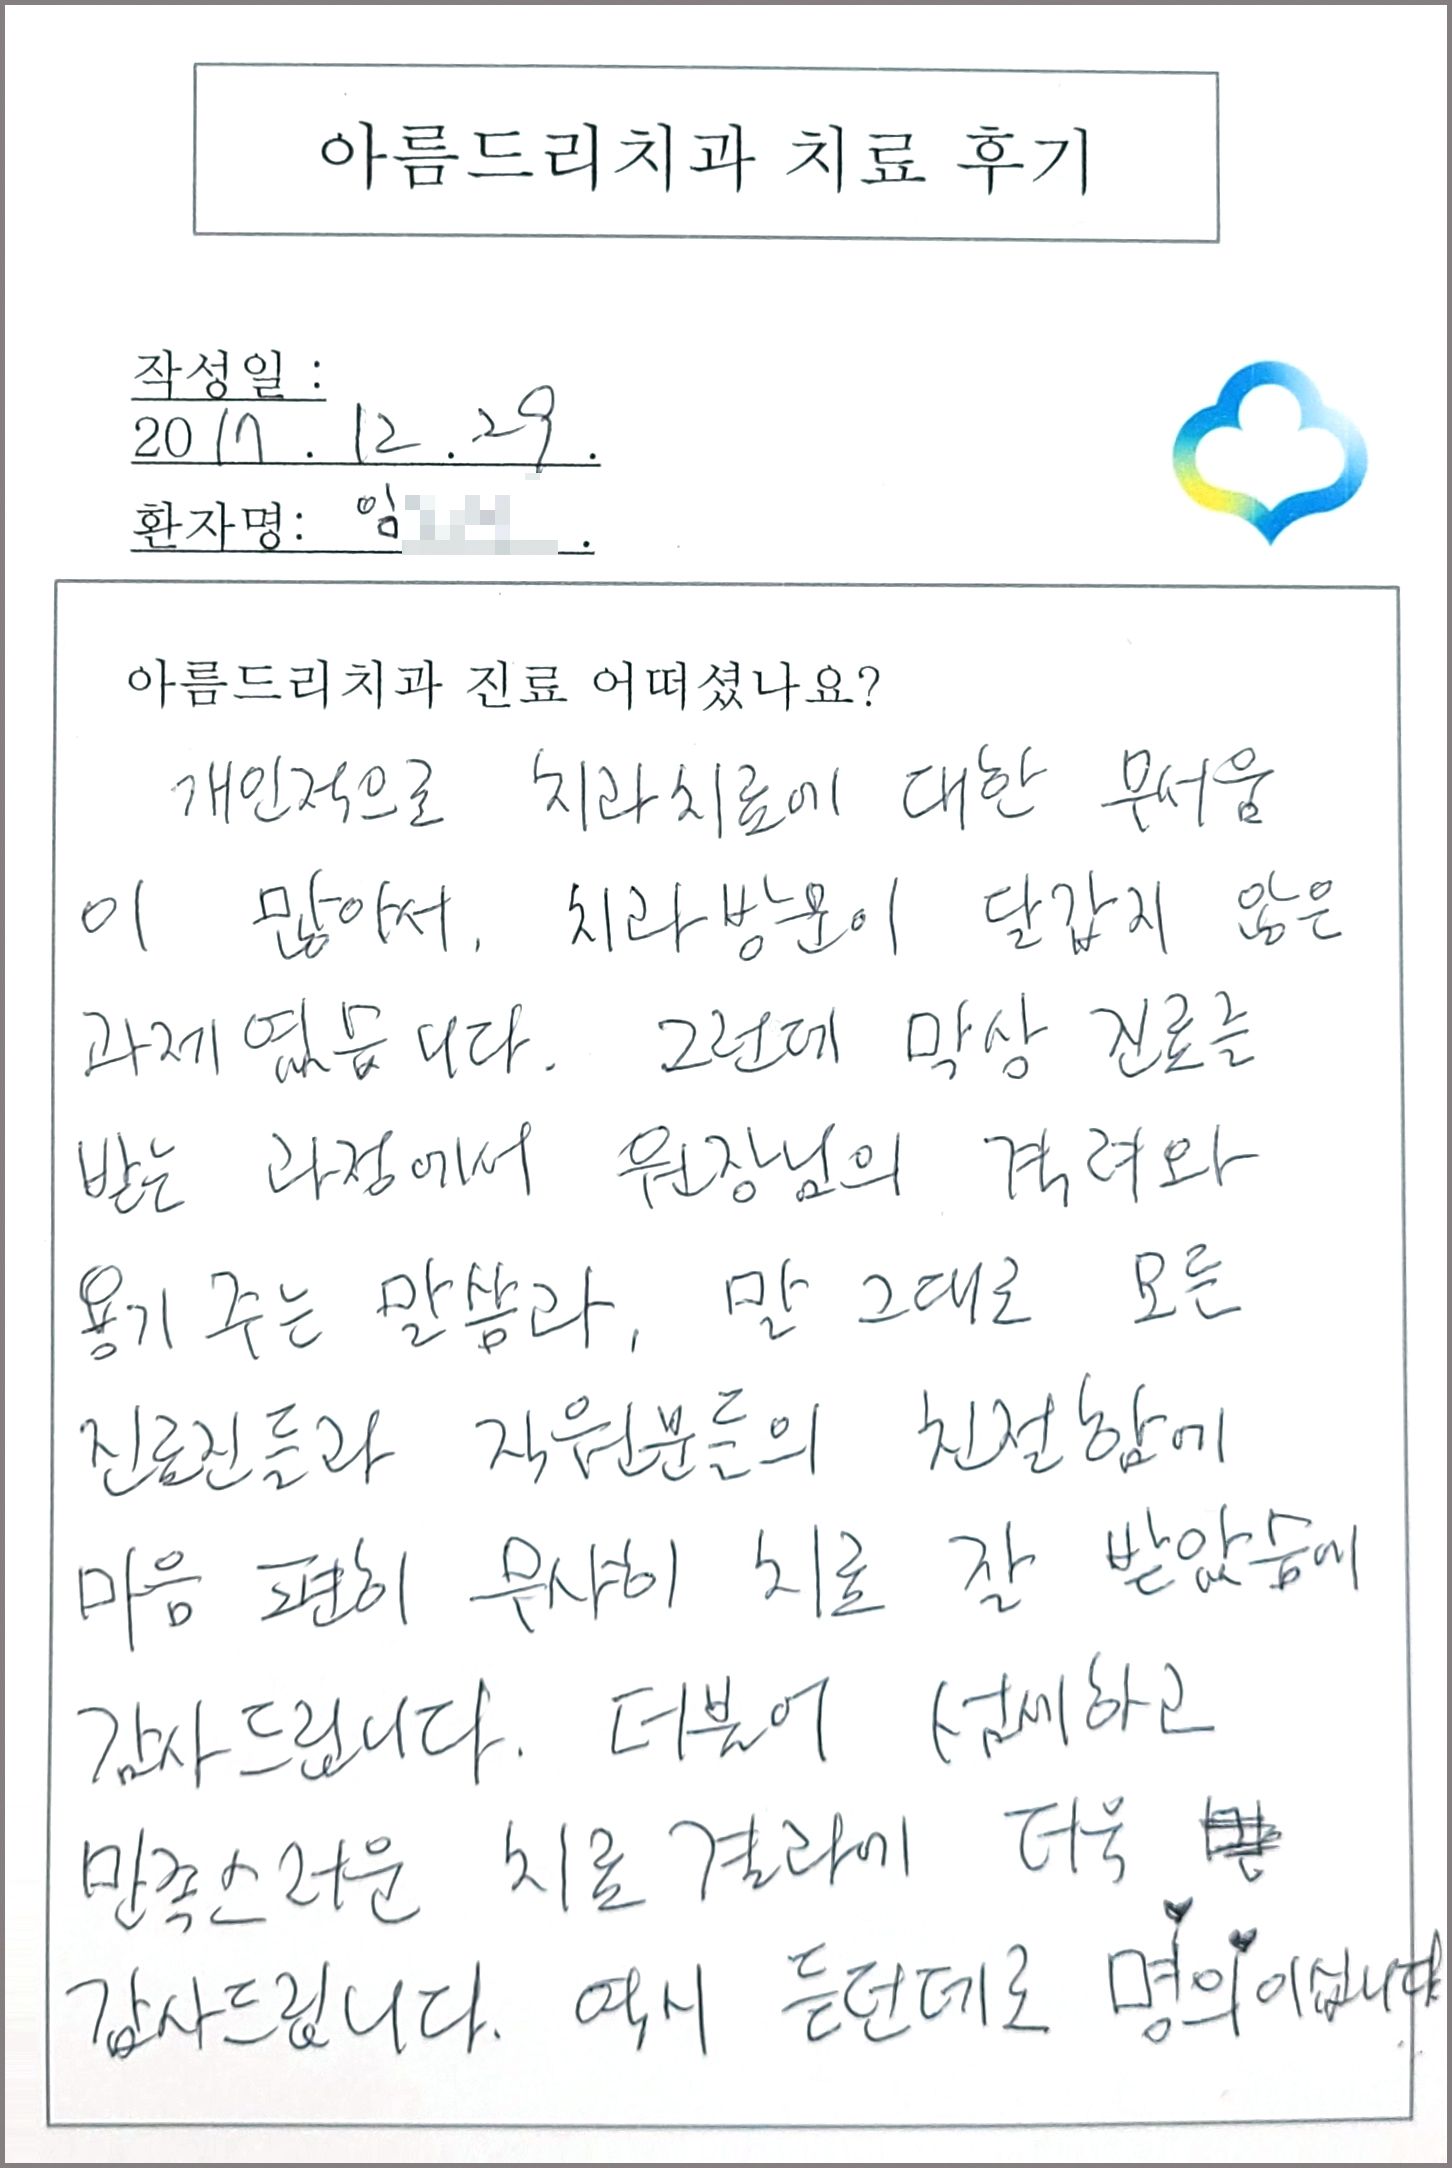 아름드리치과 치료 후기
작성일 :
2017 . 12 . 29 .
환자명: 임 .
아름드리치과 진료 어떠셨나요?
개인적으로 치과치료에 대한 무서움
이 많아서, 치과방문이 달갑지 않은
과제였읍니다. 그런데 막상 진료를
받는 과정에서 원장님의 격려와
용기 주는 말씀과, 말 그대로 모든
진료진들과 직원분들의 친절함에
마음 편히 무사히 치료 잘 받았슴에
감사드립니다. 더불어 섬세하고
만족스러운 치료결과에 더욱
감사드립니다. 역시 듣던데로 명의이십니다